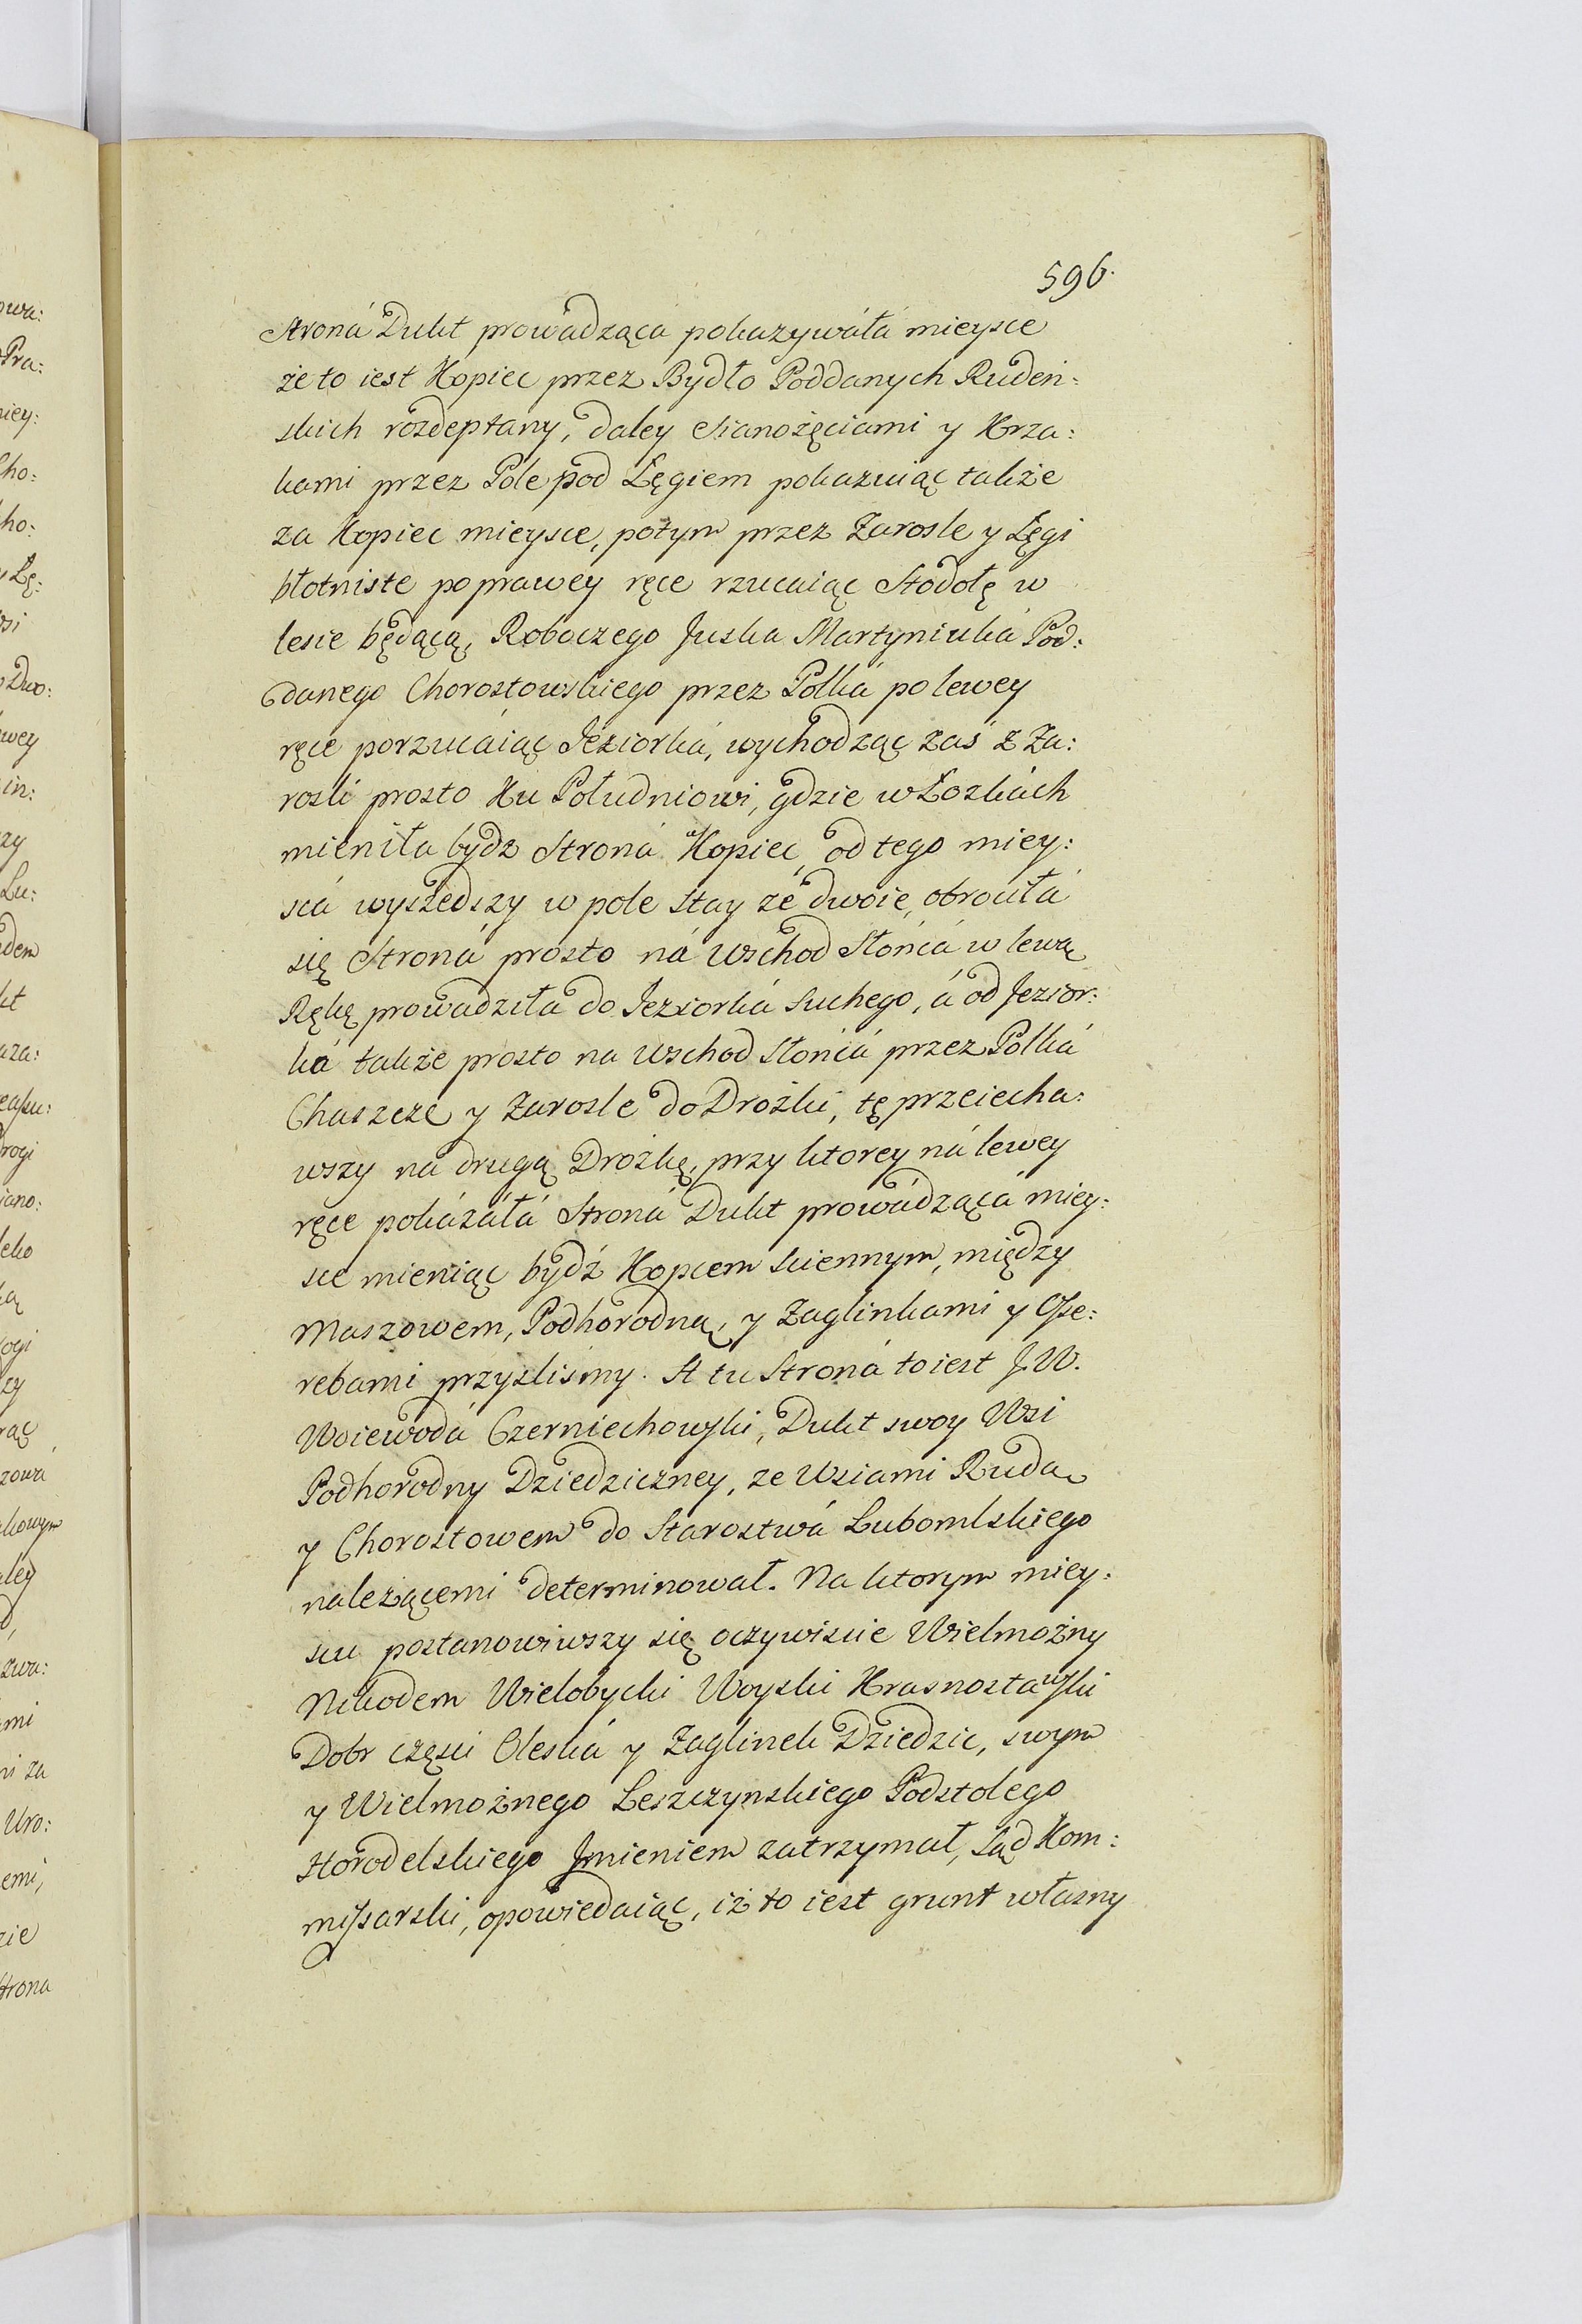 596.
Stroná Dukt prowadząca pokazywáłá mieysce
że to iest Kopiec przez Bydło Poddanych Rudeń:
skich rozdeptany, daley Sianożęciami y Krza:
kami przez Pole pod Łęgiem pokazuiąc także
za Kopiec mieysce, potym przez Zarosle y Łęgi
błotniste po prawey ręce rzucaiąc Stodołę w
lesie będącą, Roboczego Juska Martyniuká Pod:
danego Chorostowskiego przez Polká po lewey
ręce porzucáiąc Jeziorká, wychodząc zaś z Za:
rosli prosto Ku Południowi, gdzie w Łozkách
mieniła bydz Stroná Kopiec, od tego miey:
scá wyszedszy w pole stay ze dwoie, obrociłá
się Stroná prosto ná Wschod Słońcá w lewą
Rękę prowadziła do Jeziorká Suchego, á od Jezior:
ká także prosto na Wschod Słońcá przez Polká
Chaszcze y Zarosle do Drożki, tę przeiecha:
wszy na drugą Drożkę, przy ktorey ná lewey
ręce pokázáłá Stroná Dukt prowádzącá miey:
sce mieniąc bydź Kopcem sciennym, między
Maszowem, Podhorodną, y Zaglinkami y Osse:
rebami przyszlismy. A tu Stroná to iest J. W.
Woiewodá Czerniechowski, Dukt swoy Wsi
Podhorodny Dziedziczney, ze Wsiami Rudą
y Chorostowem do Starostwá Lubomlskiego
należącemi determinował. Na ktorym miey:
scu postanowiwszy się oczywiscie Wielmożny
Nikodem Wielobycki Woyski Krasnostawski
Dobr częsci Oleská y Zaglinek Dziedzic, swym
y Wielmożnego Leszczynskiego Podstolego
Horodelskiego Jmieniem zatrzymał, Sąd Kom:
missarski, opowiedaiąc, iż to iest grunt własny